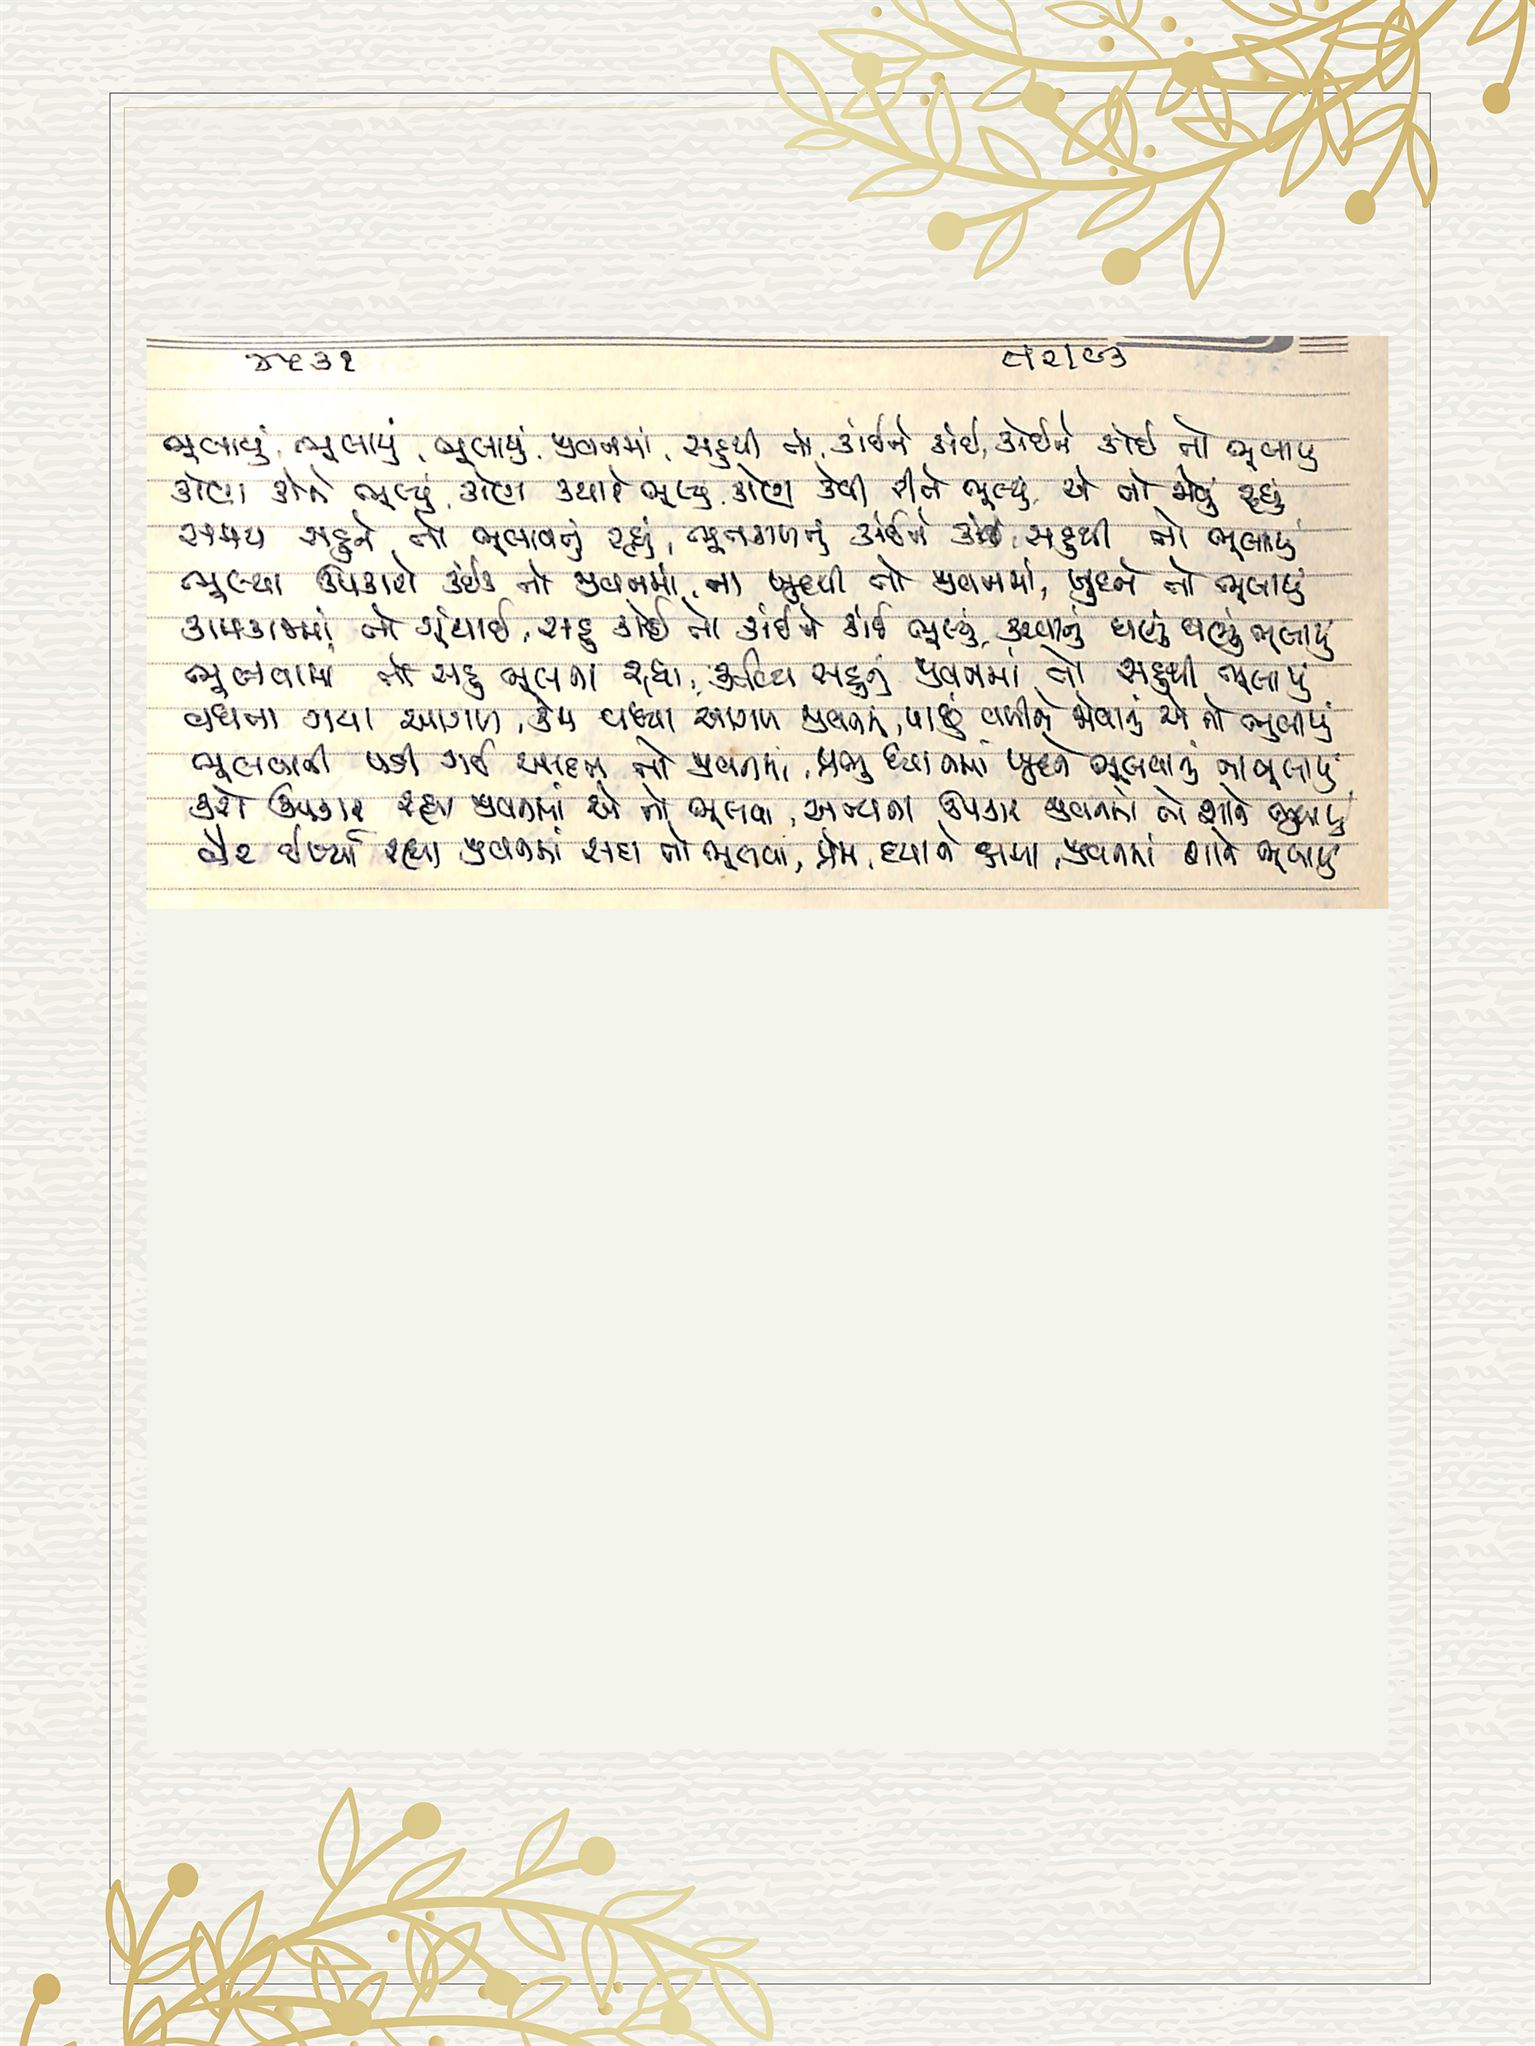 ભૂલાયું, ભૂલાયું, ભૂલાયું જીવનમાં, સહુથી તો, કાંઈને કાંઈ, કોઈને કોઈ તો ભૂલાયું
કોણ કોને ભૂલ્યું, કોણ ક્યારે ભૂલ્યું, કોણ કેવી રીતે ભૂલ્યું, એ તો જોવું રહ્યું
સમય સહુને તો ભૂલાવતું રહ્યું, ભૂતકાળનું કાંઈને કાંઈ, સહુથી તો ભૂલાયું
ભૂલ્યા ઉપકારો કંઈક તો જીવનમાં, ના ખુદથી તો જીવનમાં, ખુદને તો ભૂલાયું
કામકાજમાં તો ગૂંથાઈ, સહુ કોઈ તો કાંઈને કાંઈ ભૂલ્યું, કરવાનું ઘણું ઘણું ભૂલાયું
ભૂલવામાં તો સહુ ભૂલતા રહ્યા, કર્તવ્ય સહુનું જીવનમાં તો સહુથી ભૂલાયું
વધતા ગયા આગળ, કેમ વધ્યા આગળ જીવનમાં, પાછું વળીને જોવાનું એ તો ભુલાયું
ભૂલવાની પડી ગઈ આદત તો જીવનમાં, પ્રભુ ધ્યાનમાં ખુદને ભૂલવાનું ના ભૂલાયું
કરો ઉપકાર જીવનમાં એ તો ભૂલવા, અન્યના ઉપકાર જીવનમાં તો શાને ભુલાયું
વૈર ઈર્ષ્યા રહ્યા જીવનમાં સદા તો ભૂલવા, પ્રેમ, દયાને ક્ષમા, જીવનમાં શાને ભૂલાયું